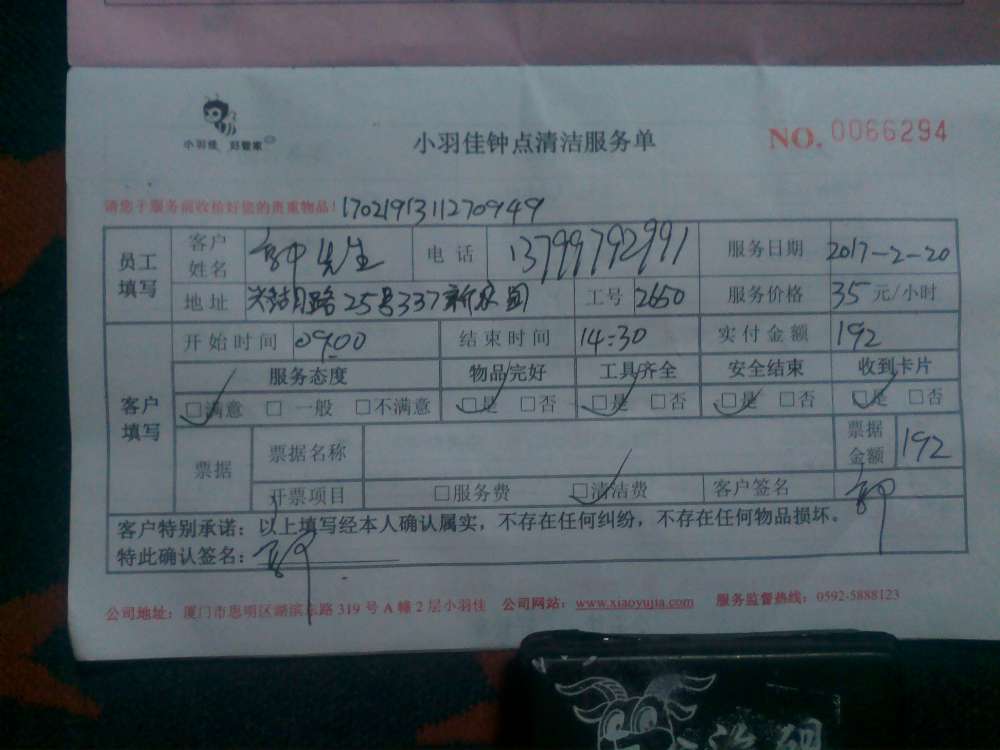 小羽佳 好管家
小羽佳钟点清洁服务单
NO. 0066294
请您于服务前收拾好您的贵重物品! 1702191311270949
员工填写 客户姓名 先生 电话 13799792991 服务日期 2017-2-20
地址 路25号337 工号 2650 服务价格 35 元/小时
客户填写 开始时间 09:00 结束时间 14:30 实付金额 192
服务态度 物品完好 工具齐全 安全结束 收到卡片
□满意 □一般 □不满意 □是 □否 □是 □否 □是 □否 □是 □否
票据 票据名称 票据金额 192
开票项目 □服务费 □清洁费 客户签名
客户特别承诺：以上填写经本人确认属实，不存在任何纠纷，不存在任何物品损坏。
特此确认签名：
公司地址：厦门市思明区湖滨东路 319 号 A 幢 2 层小羽佳 公司网站：www.xiaoyujia.com 服务监督热线：0592-5888123